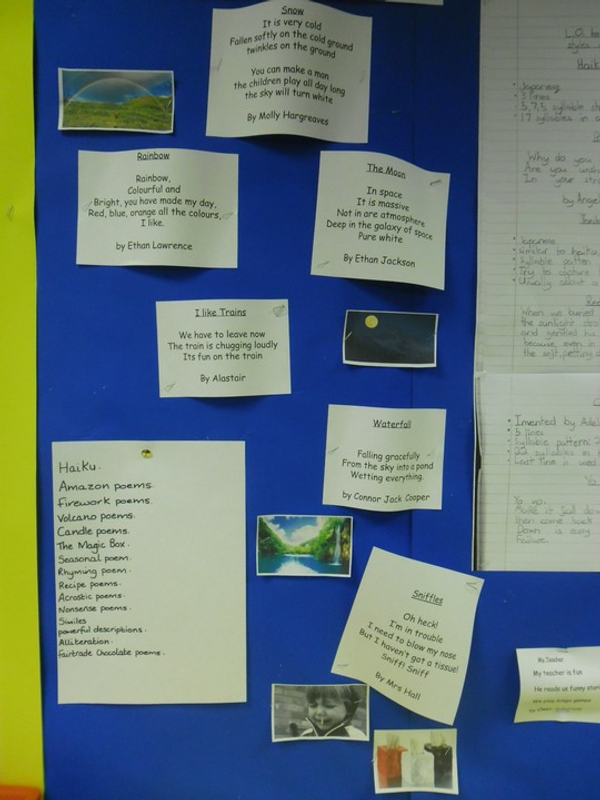 Snow
It is very cold
Fallen softly on the cold ground
twinkles on the ground
You can make a man
the children play all day long
the sky will turn white
By Molly Hargreaves
Rainbow
Rainbow,
Colourful and
Bright, you have made my day,
Red, blue, orange all the colours,
I like.
by Ethan Lawrence
The Moon
In space
It is massive
Not in are atmosphere
Deep in the galaxy of space
Pure white
By Ethan Jackson
I like Trains
We have to leave now
The train is chugging loudly
Its fun on the train
By Alastair
Waterfall
Falling gracefully
From the sky into a pond
Wetting everything.
by Connor Jack Cooper
Haiku.
Amazon poems.
Firework poems.
Volcano poems.
Candle poems.
The Magic Box.
Seasonal poem.
Rhyming poem.
Recipe poems.
Acrostic poems.
Nonsense poems.
Similes
powerful descriptions.
Alliteration.
Fairtrade Chocolate poems.
Sniffles
Oh heck!
I'm in trouble
I need to blow my nose
But I haven't got a tissue!
Sniff! Sniff
By Mrs Hall
L.O.
styles
Haik
Japanese
3 lines
5,7,5 syllable
17 syllables in
Why do you
Are you
In your
by Ange
Japanese
similar to haiku
Syllable pattern
Try to capture
Usually about a
When we buried
the sunlight
and
because, even in
the soft,
Invented by Adel
5 lines
Syllable pattern 2
22 syllables in
Last line is used
Yo yo.
Make it fall do
then come back
Down is easy
Failure.
My Teacher
My teacher is fun
He reads us funny stori